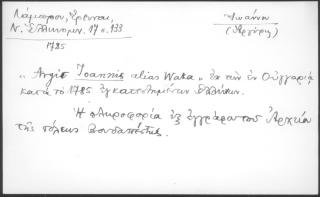 Λάμπρου, Έρευναι,
Ν. Ἑλληνομν. 17 σ. 133
1785
Ἰωάννου
(Ἀργύρης)
"Argir Joannis alias Waka" ἐκ τῶν ἐν Οὑγγαρίᾳ
κατὰ τὸ 1785 ἐγκατεστημένων Ἑλλήνων.
Ἡ πληροφορία ἐξ ἐγγράφου τοῦ Ἀρχείου
τῆς πόλεως Βουδαπέστης.